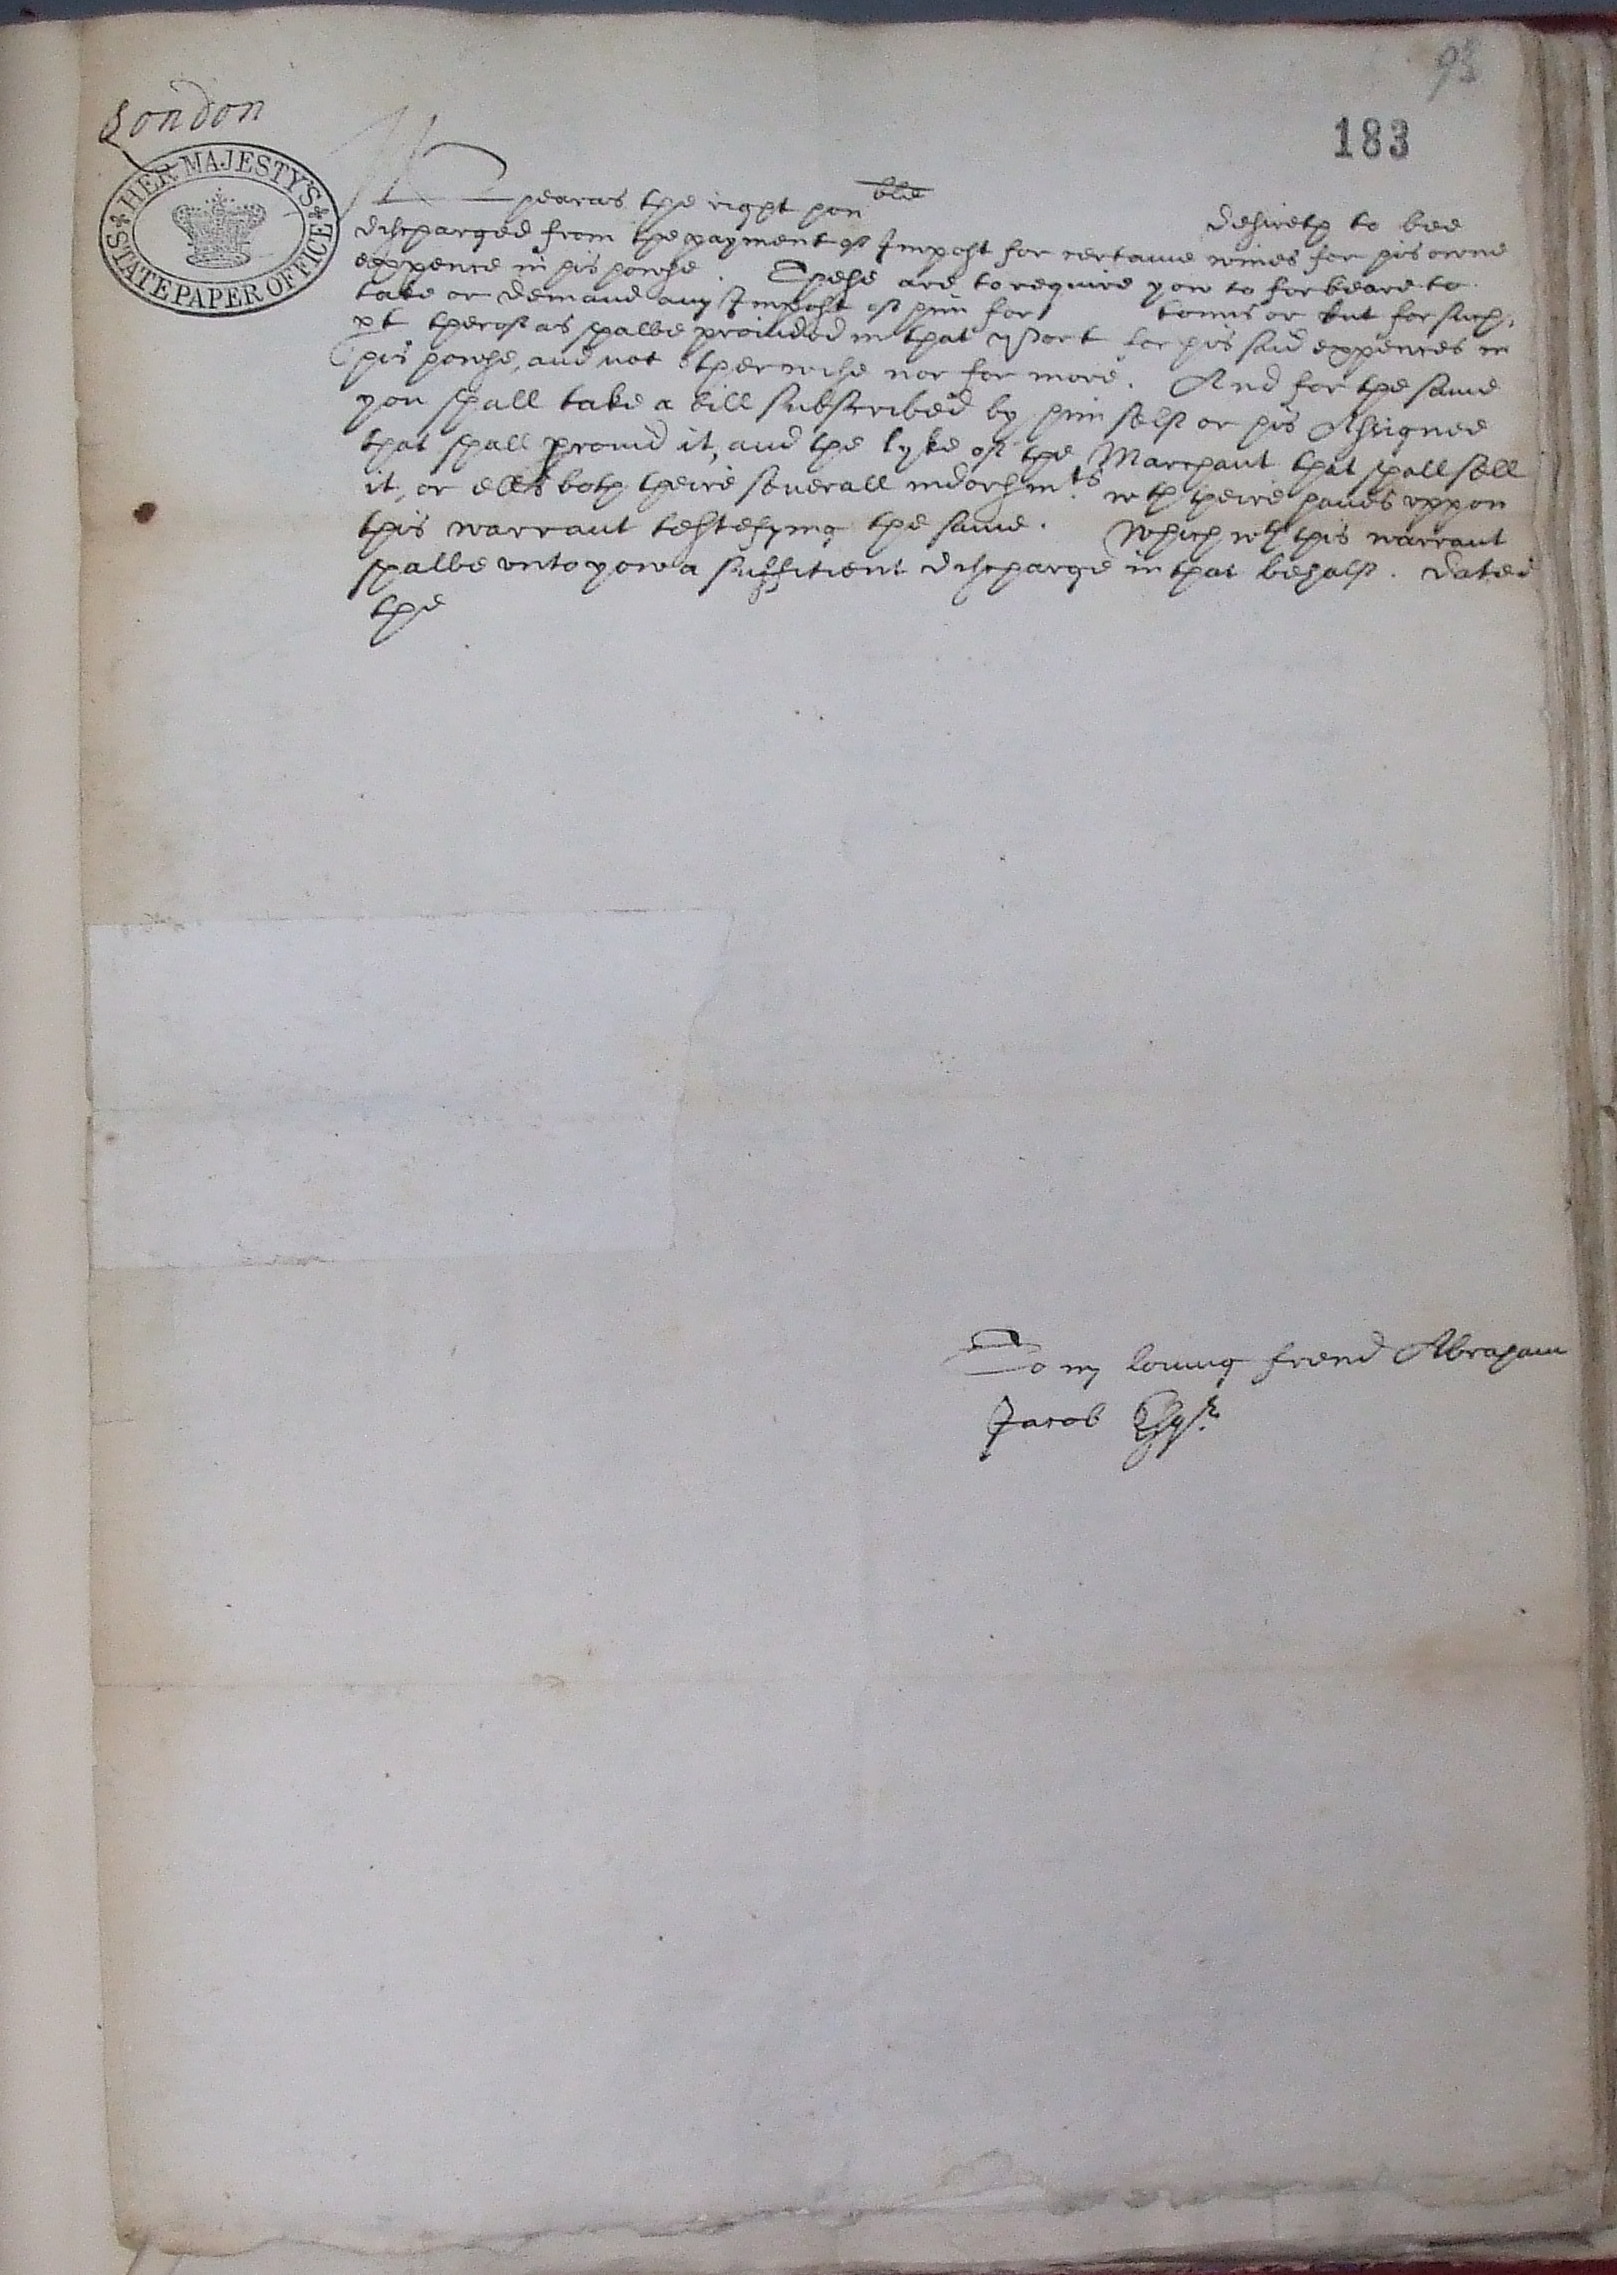 93
183
London
HER MAJESTY'S
STATE PAPER OFFICE
Whearas the right hon ble desireth to bee
discharged from the payment of Impost for certaine wines for his owne
expence in his howse. These are to require yow to forbeare to
take or demaund any Impost of him for tonns or but for such
pt therof as shalbe prouided in that Port for his said expences in
his howse, and not otherwise nor for more. And for the same
you shall take a bill subscribed by him self or his Assignee
that shall prouid it, and the lyke of the Marchant that shall sell
it, or ells both theire seuerall indorsmts wth theire hands vppon
this warrant testefying the same. Which wth this warrant
shalbe vnto yow a suffitient discharge in that behalf. Dated
the
To my louing frend Abraham
Jacob Esqr.